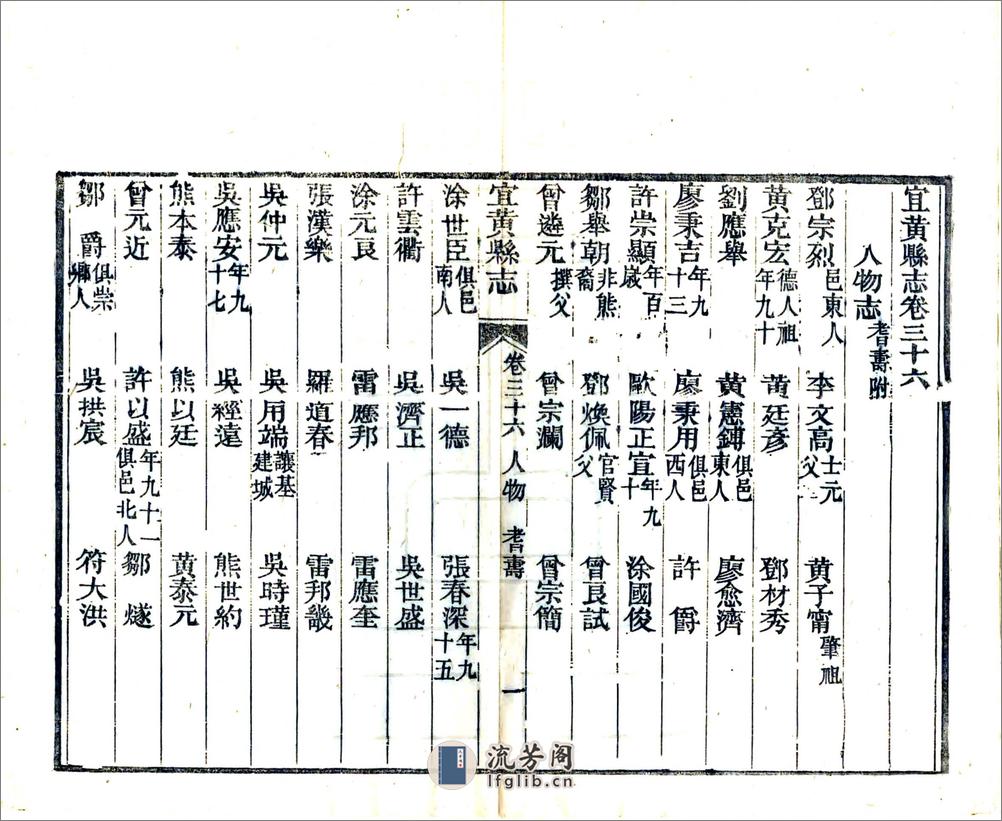 宜黃縣志卷三十六
人物志耆壽附
鄧宗烈邑東人 李文高士元父 黃子甯肇祖
黃克宏德人祖年九十 黃廷彥 鄧材秀
劉應舉 黃憲鏄俱邑東人 廖愈濟
廖秉吉年九十三 廖秉用俱邑西人 許爵
許崇顯年百歲 歐陽正宣年九十 涂國俊
鄒舉朝非熊裔 鄧煥佩官賢父 曾良試
曾遴元撰父 曾宗瀾 曾宗簡
宜黃縣志 卷三十六 人物 耆壽 一
涂世臣俱邑南人 吳一德 張春深年九十五
許雲衢 吳濟正 吳世盛
涂元良 雷應邦 雷應奎
張漢樂 羅道春 雷邦畿
吳仲元 吳用端讓基建城 吳時瑾
吳應安年九十七 吳經遠 熊世約
熊本泰 熊以廷 黃泰元
曾元近 許以盛年九十一俱邑北人 鄒燧
鄒爵俱崇鄉人 吳拱宸 符大洪
流芳阁
lfglib.cn